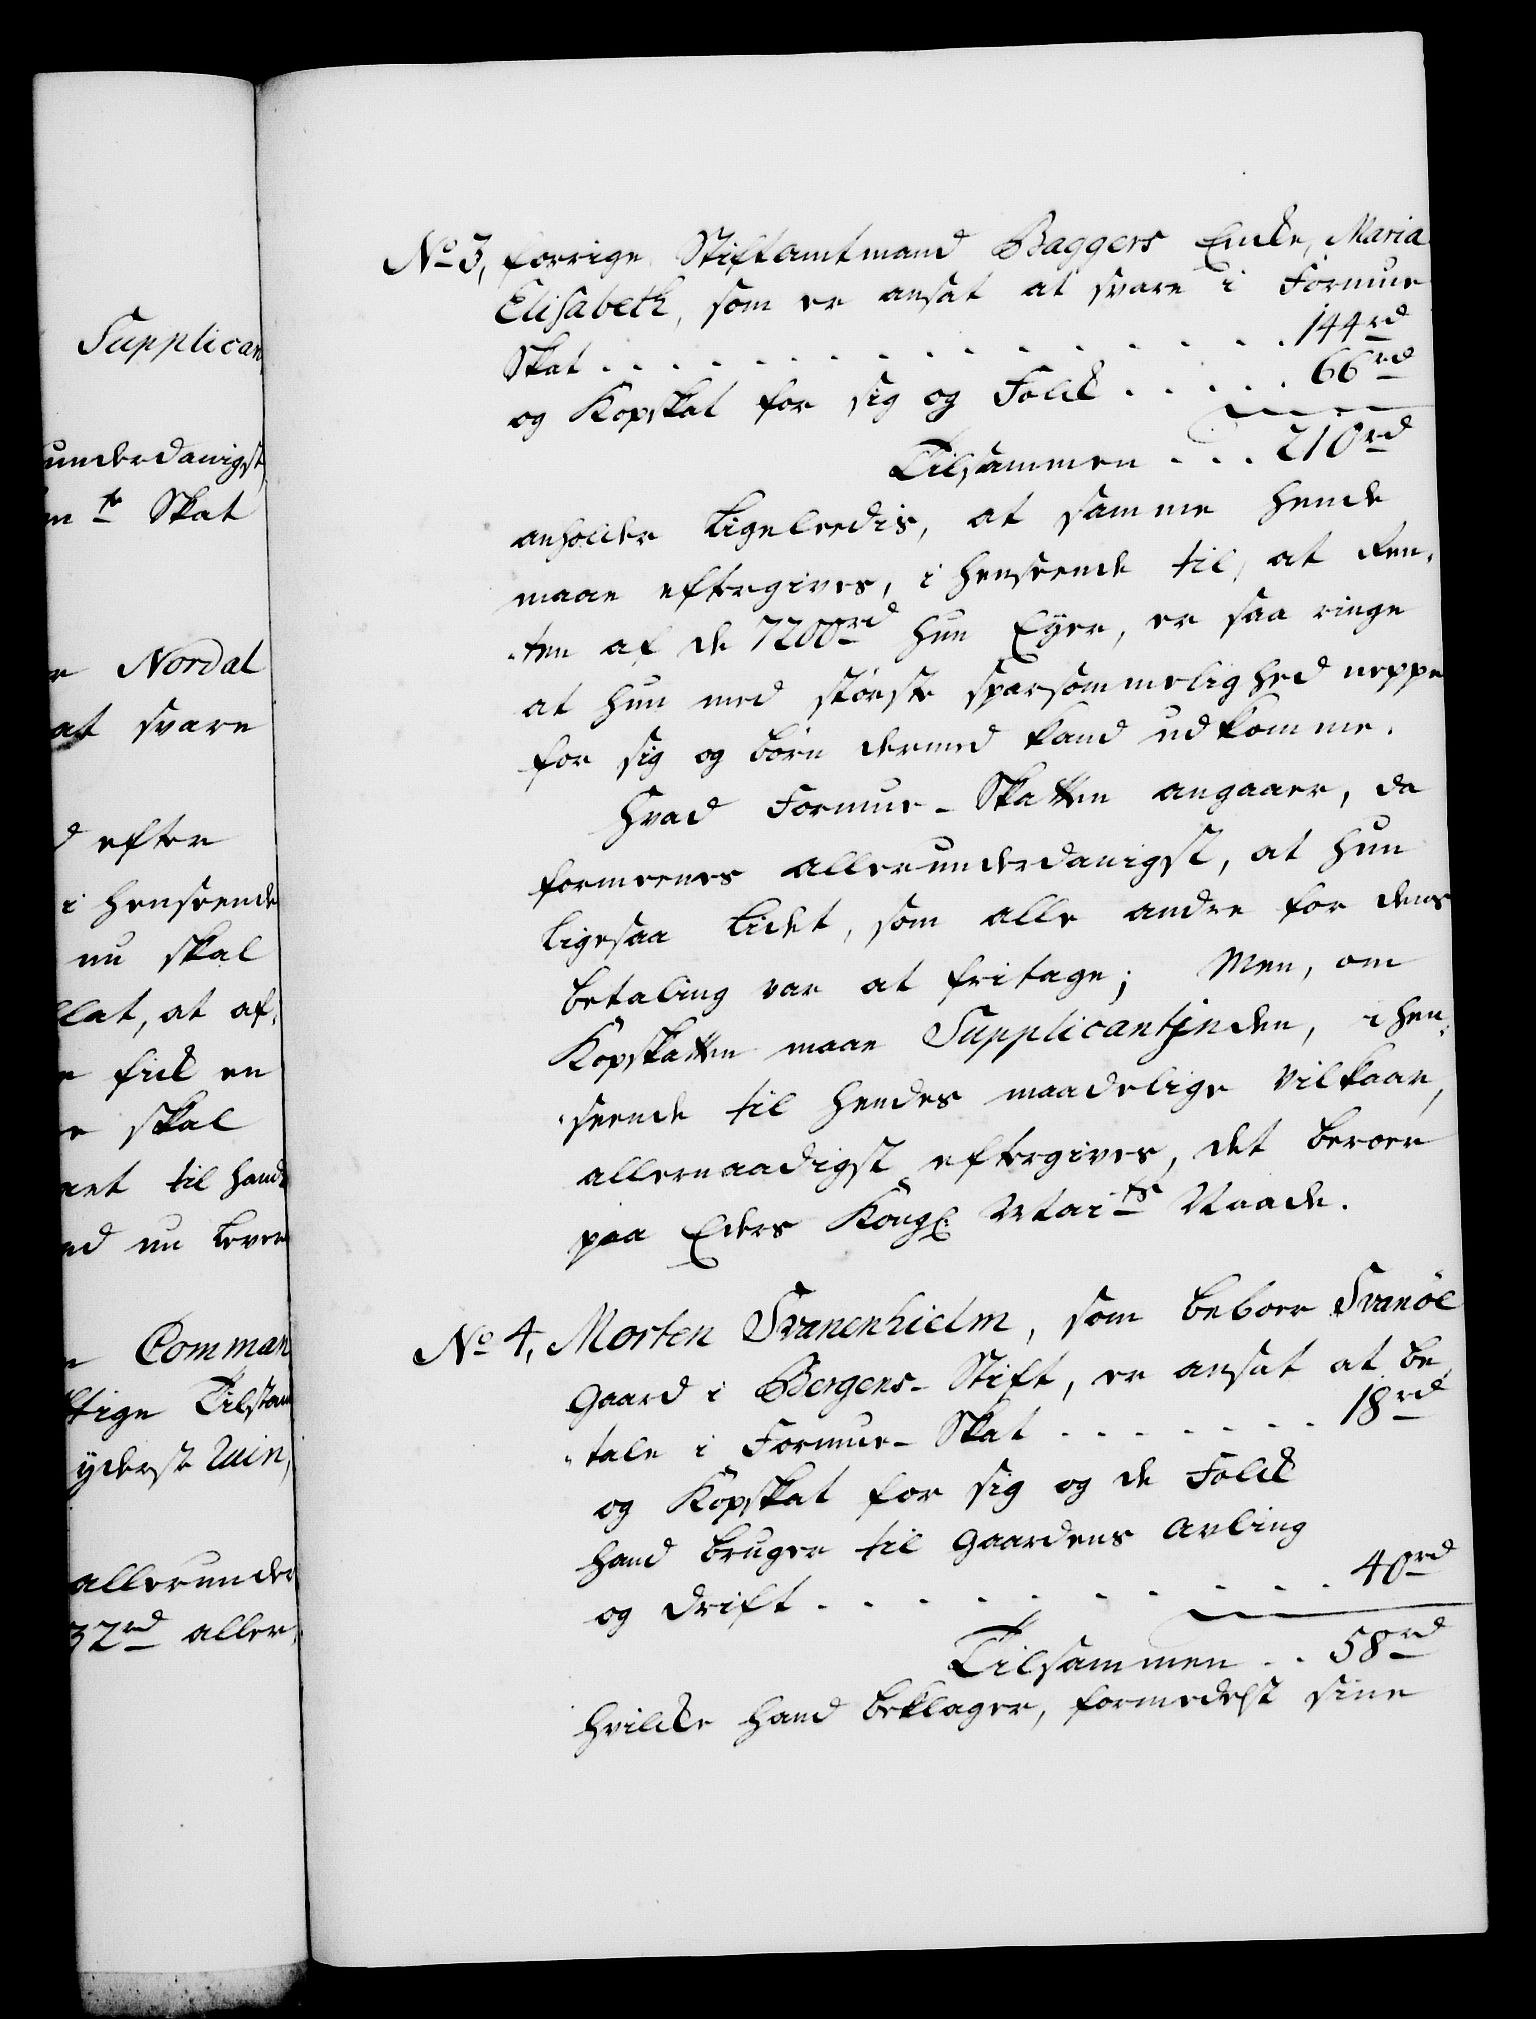 Supplican
underdanigst
Skat
Nordal
at svare
d efter
i henseende
nu skal
llat, at af
fick en
skal
til hand
nu lever
Comman
tige Tilstan
yderste Ruin,
allerunder
32rd aller
No 3, forrige Stiftamtmand Baggers Encke, Maria
Elisabeth, som er ansat at svare i Formue
Skat . . . . . . . . . . . . . . 144rd
og Kopskat for sig og Folck . . . . . 66rd
Tilsammen . . . 210rd
anholder ligeleedis, at samme hende
maae eftergives, i henseende til, at Ren-
-ten af de 7200rd hun Eyer, er saa ringe
at hun med störste sparsommelighed neppe
for sig og börn dermed kand udkomme.
Hvad Formue-Skatten angaaer, da
formeenes allerunderdanigst, at hun
ligesaa lidet, som alle andre for dens
betaling var at fritage; Men, om
Kopskatten maae Supplicantinden, i hen-
-seende til hendes maadelige Vilkaar,
allernaadigst eftergives, det beroer
paa Eders Kongl: Maits Naade.
No 4, Morten Svanenhielm, som beboer Svanöe
Gaard i Bergens-Stift, er ansat at be-
-tale i Formue-Skat . . . . . . . 18rd
og Kopskat for sig og de Folck
hand bruger til Gaardens Avling
og drift . . . . . . . . . . 40rd
Tilsammen . . 58rd
hvilcke hand beklager, formedelst sine